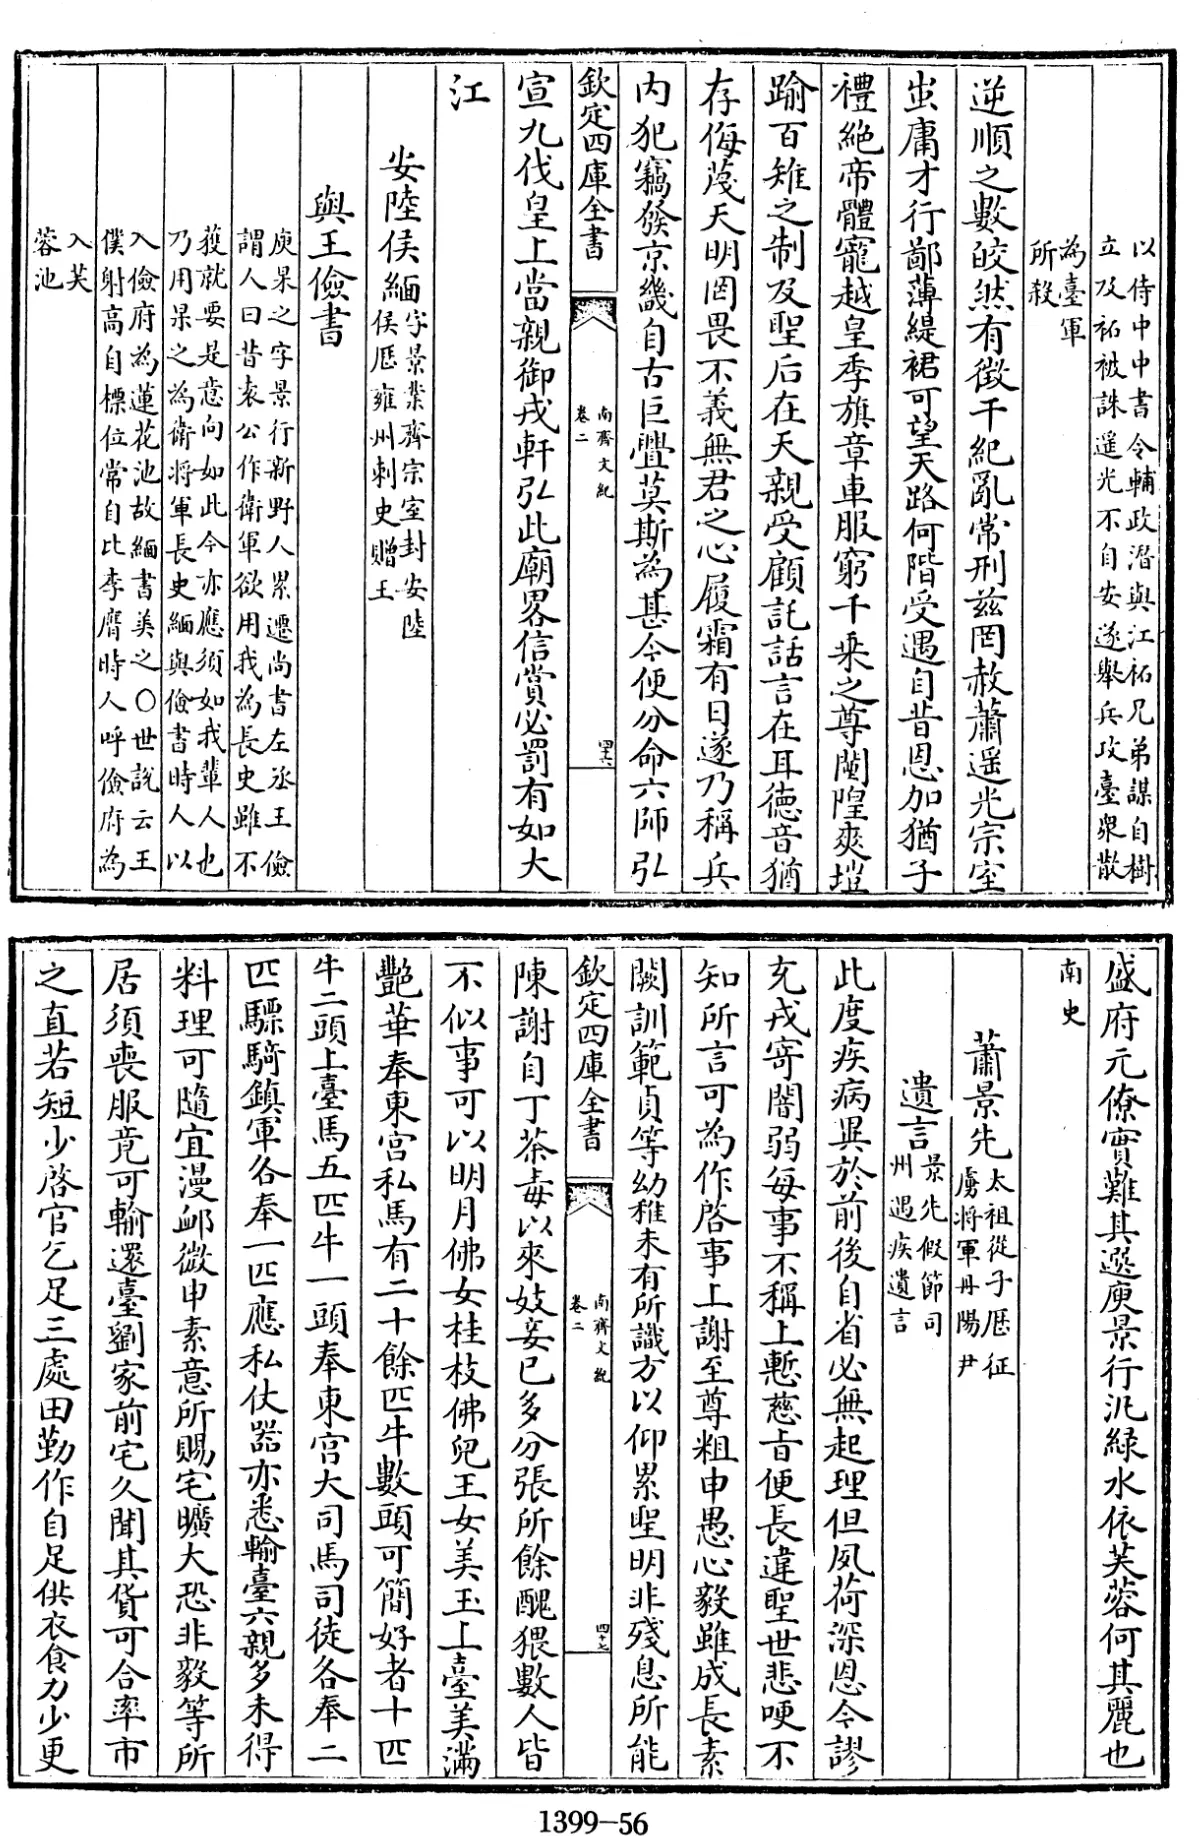 以侍中中書令輔政潛與江祏兄弟謀自樹
立及祏被誅遥光不自安遂舉兵攻臺衆散
為臺軍
所殺
逆順之數皎然有徴干紀亂常刑兹罔赦蕭遥光宗室
蚩庸才行鄙薄緹裙可望天路何階受遇自昔恩加猶子
禮絶帝體寵越皇季旗章車服窮千乗之尊闉隍爽塏
踰百雉之制及聖后在天親受顧託話言在耳徳音猶
存侮蔑天明罔畏不義無君之心履霜有日遂乃稱兵
内犯竊發京畿自古巨釁莫斯為甚今便分命六師弘
欽定四庫全書
南齊文紀
卷二
四十六
宣九伐皇上當親御戎軒弘此廟畧信賞必罰有如大
江
安陸侯緬
字景業齊宗室封安陸
侯歴雍州刺史贈王
與王儉書
庾杲之字景行新野人累遷尚書左丞王儉
謂人曰昔袁公作衛軍欲用我為長史雖不
獲就要是意向如此今亦應須如我輩人也
乃用杲之為衛將軍長史緬與儉書時人以
入儉府為蓮花池故緬書美之〇世說云王
僕射高自標位常自比李膺時人呼儉府為
入芙
蓉池
盛府元僚實難其選庾景行汎緑水依芙蓉何其麗也
南史
蕭景先
太祖從子歴征
虜將軍丹陽尹
遺言
景先假節司
州遇疾遺言
此度疾病異於前後自省必無起理但夙荷深恩今謬
充戎寄闇弱每事不稱上慙慈旨便長違聖世悲哽不
知所言可為作啓事上謝至尊粗申愚心毅雖成長素
闕訓範貞等幼稚未有所識方以仰累聖明非殘息所能
欽定四庫全書
南齊文紀
卷二
四十七
陳謝自丁荼毒以來妓妾已多分張所餘醜猥數人皆
不似事可以明月佛女桂枝佛兒王女美玉上臺美滿
艷華奉東宫私馬有二十餘匹牛數頭可簡好者十匹
牛二頭上臺馬五匹牛一頭奉東宫大司馬司徒各奉二
匹驃騎鎮軍各奉一匹應私仗器亦悉輸臺六親多未得
料理可隨宜漫卹微申素意所賜宅曠大恐非毅等所
居須喪服竟可輸還臺劉家前宅久聞其貨可合率市
之直若短少啓官乞足三處田勤作自足供衣食力少更
1399-56